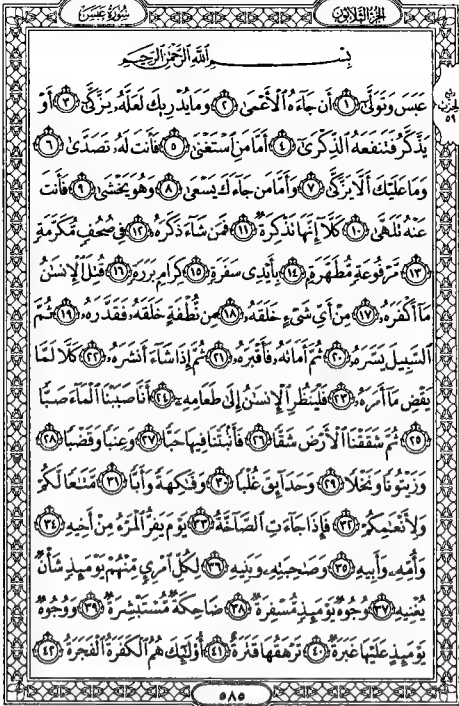 الجزء الثلاثون
سورة عبس
بِسْمِ ٱللَّهِ ٱلرَّحْمَٰنِ ٱلرَّحِيمِ
عَبَسَ وَتَوَلَّىٰٓ ١ أَن جَآءَهُ ٱلْأَعْمَىٰ ٢ وَمَا يُدْرِيكَ لَعَلَّهُۥ يَزَّكَّىٰٓ ٣ أَوْ
يَذَّكَّرُ فَتَنفَعَهُ ٱلذِّكْرَىٰٓ ٤ أَمَّا مَنِ ٱسْتَغْنَىٰ ٥ فَأَنتَ لَهُۥ تَصَدَّىٰ ٦
وَمَا عَلَيْكَ أَلَّا يَزَّكَّىٰ ٧ وَأَمَّا مَن جَآءَكَ يَسْعَىٰ ٨ وَهُوَ يَخْشَىٰ ٩ فَأَنتَ
عَنْهُ تَلَهَّىٰ ١٠ كَلَّآ إِنَّهَا تَذْكِرَةٌ ١١ فَمَن شَآءَ ذَكَرَهُۥ ١٢ فِى صُحُفٍ مُّكَرَّمَةٍ
١٣ مَّرْفُوعَةٍ مُّطَهَّرَةٍۭ ١٤ بِأَيْدِى سَفَرَةٍ ١٥ كِرَامٍۭ بَرَرَةٍ ١٦ قُتِلَ ٱلْإِنسَٰنُ
مَآ أَكْفَرَهُۥ ١٧ مِنْ أَىِّ شَىْءٍ خَلَقَهُۥ ١٨ مِن نُّطْفَةٍ خَلَقَهُۥ فَقَدَّرَهُۥ ١٩ ثُمَّ
ٱلسَّبِيلَ يَسَّرَهُۥ ٢٠ ثُمَّ أَمَاتَهُۥ فَأَقْبَرَهُۥ ٢١ ثُمَّ إِذَا شَآءَ أَنشَرَهُۥ ٢٢ كَلَّا لَمَّا
يَقْضِ مَآ أَمَرَهُۥ ٢٣ فَلْيَنظُرِ ٱلْإِنسَٰنُ إِلَىٰ طَعَامِهِۦٓ ٢٤ أَنَّا صَبَبْنَا ٱلْمَآءَ صَبًّا
٢٥ ثُمَّ شَقَقْنَا ٱلْأَرْضَ شَقًّا ٢٦ فَأَنۢبَتْنَا فِيهَا حَبًّا ٢٧ وَعِنَبًا وَقَضْبًا ٢٨
وَزَيْتُونًا وَنَخْلًا ٢٩ وَحَدَآئِقَ غُلْبًا ٣٠ وَفَٰكِهَةً وَأَبًّا ٣١ مَّتَٰعًا لَّكُمْ
وَلِأَنْعَٰمِكُمْ ٣٢ فَإِذَا جَآءَتِ ٱلصَّآخَّةُ ٣٣ يَوْمَ يَفِرُّ ٱلْمَرْءُ مِنْ أَخِيهِ ٣٤
وَأُمِّهِۦ وَأَبِيهِ ٣٥ وَصَٰحِبَتِهِۦ وَبَنِيهِ ٣٦ لِكُلِّ ٱمْرِئٍ مِّنْهُمْ يَوْمَئِذٍ شَأْنٌ
يُغْنِيهِ ٣٧ وُجُوهٌ يَوْمَئِذٍ مُّسْفِرَةٌ ٣٨ ضَاحِكَةٌ مُّسْتَبْشِرَةٌ ٣٩ وَوُجُوهٌ
يَوْمَئِذٍ عَلَيْهَا غَبَرَةٌ ٤٠ تَرْهَقُهَا قَتَرَةٌ ٤١ أُو۟لَٰٓئِكَ هُمُ ٱلْكَفَرَةُ ٱلْفَجَرَةُ ٤٢
٥٨٥
الحزب
٥٩